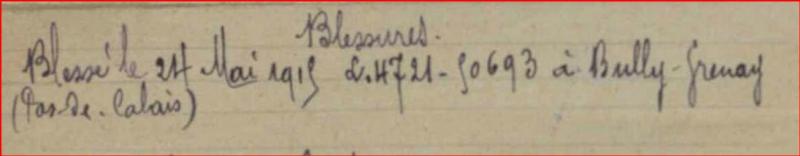 Blessures.
Blessé le 24 Mai 1915 L.4721-50693 à Bully-Grenay
(Pas-de-Calais)